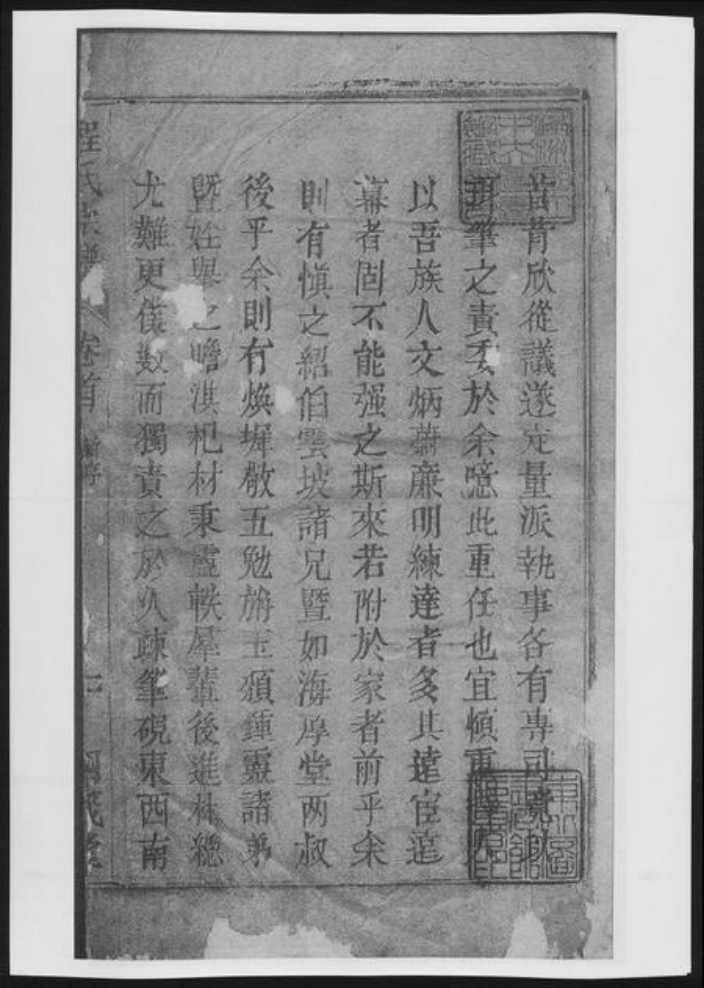 昔肯欣從議遂定量派執事各有專司
筆之責委於余噫此重任也宜慎重
以吾族人文炳蔚廉明練達者多其遠宦遠
幕者固不能强之斯來若附於家者前乎余
則有慎之紹伯雲坡諸兄暨如海厚堂兩叔
後乎余則有煥墀敬五勉旃玉頌鍾靈諸弟
暨姪舉之瞻淇杞材秉靈軼羣輩後進林總
尤難更僕數而獨責之於久疎筆硯東西南
程氏宗譜 卷首 新序